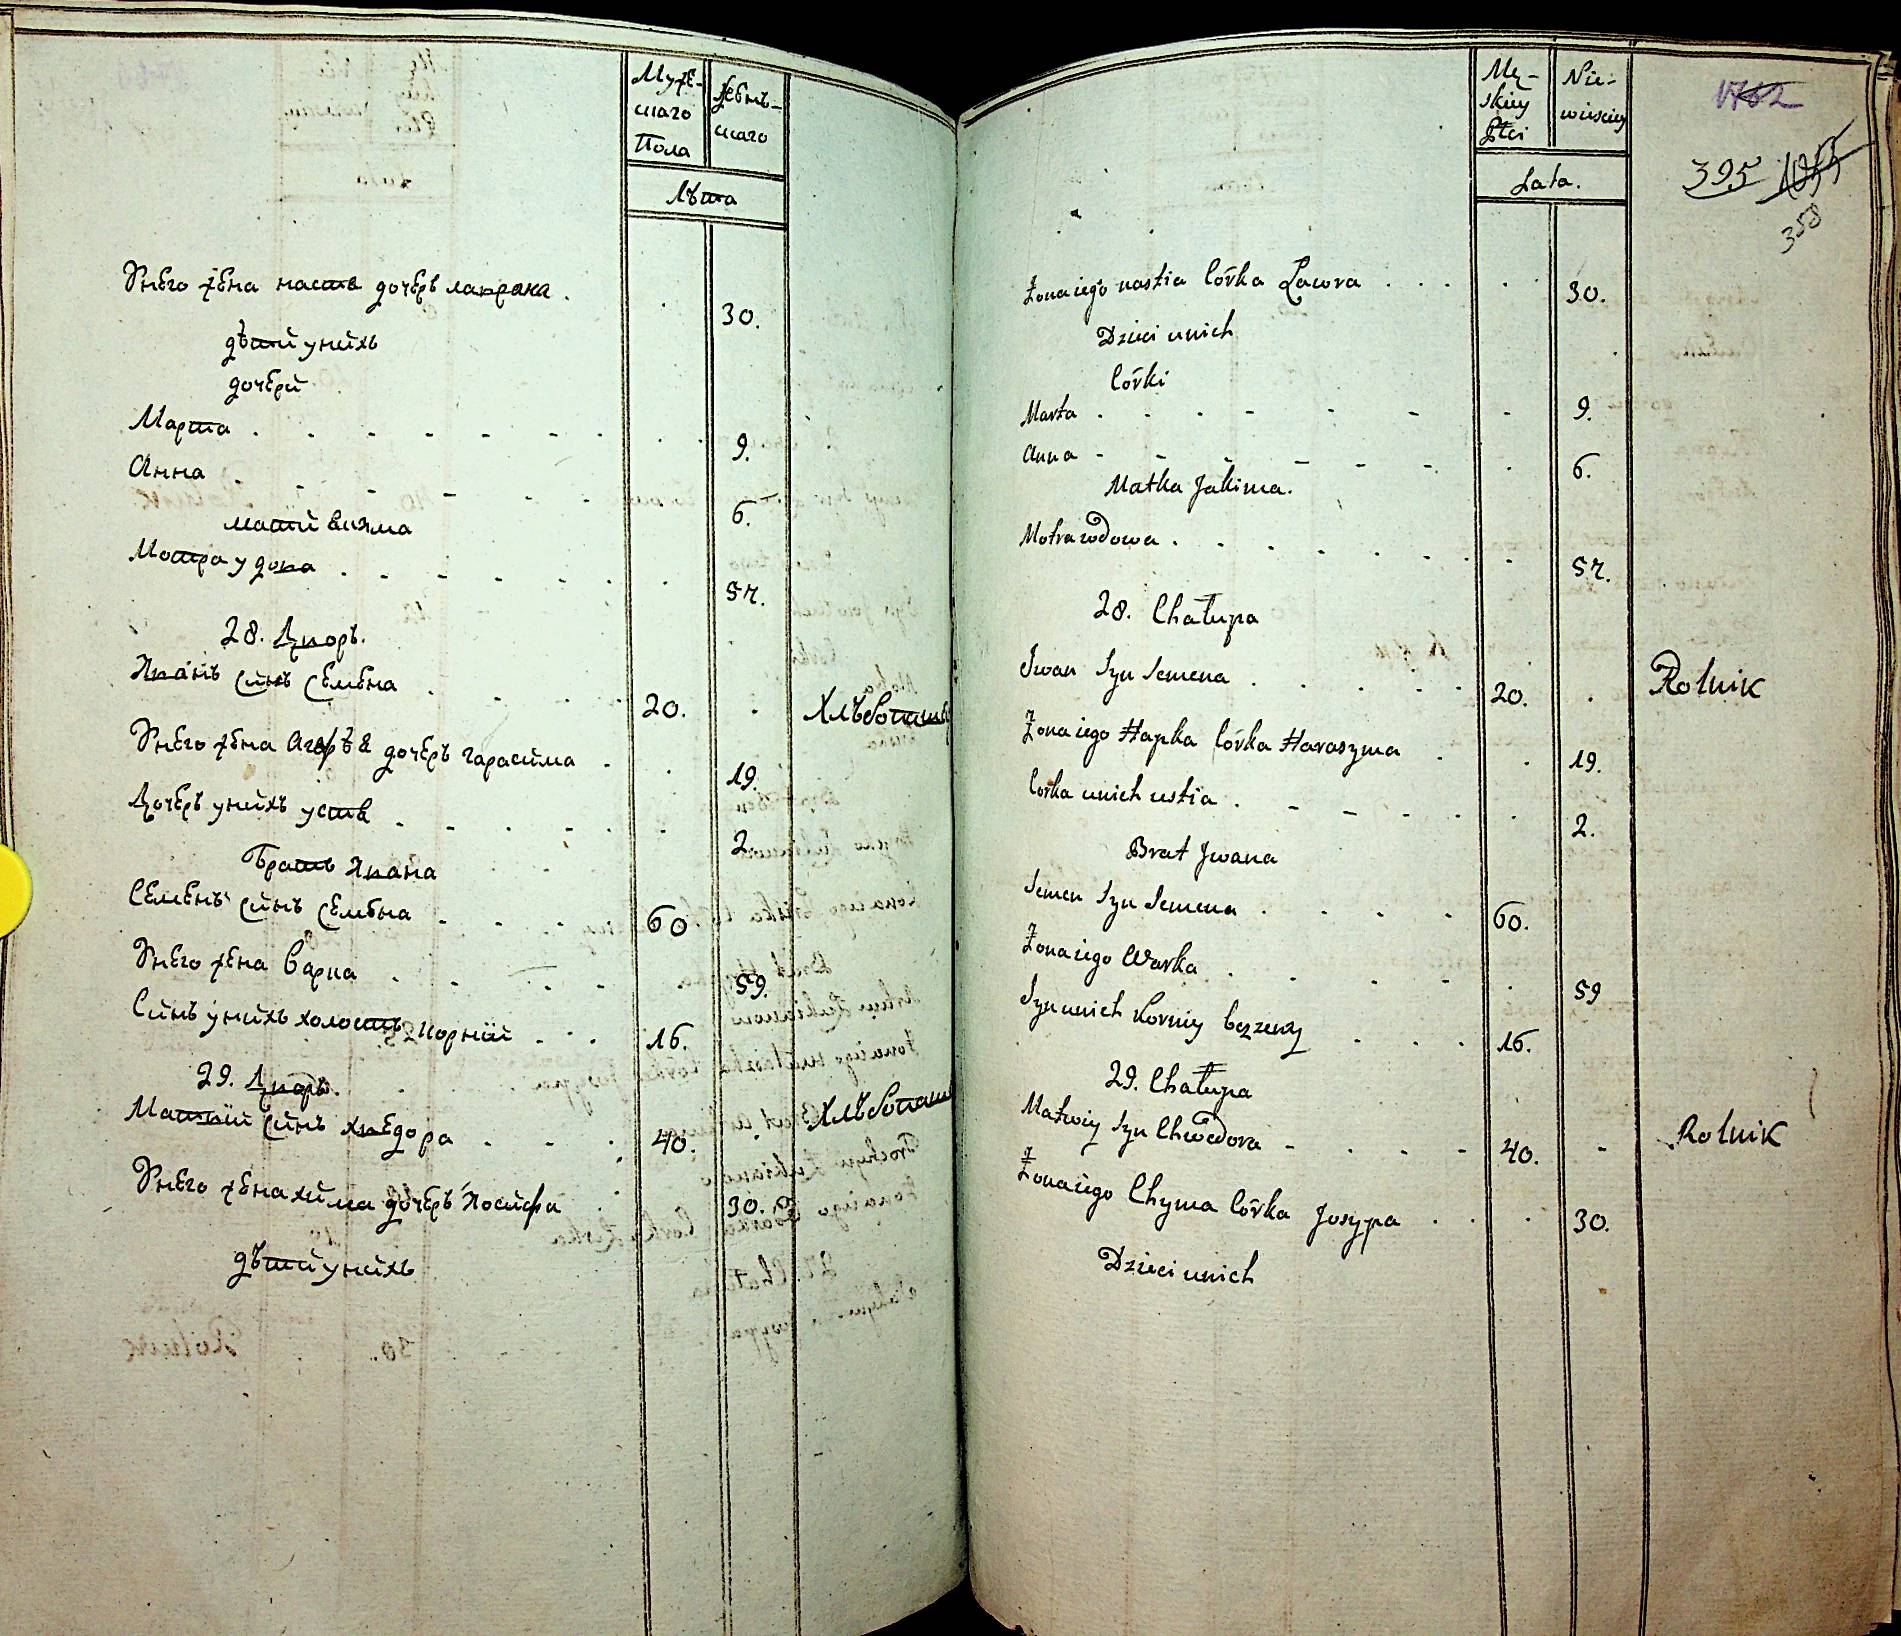 Муже-
скаго
Пола
Женъ-
скаго
Лѣта
Унего жена настя дочерь лавра . 30.
дѣтй унйхъ
дочерй
Марта . . . . . . 9.
Анна . . . . . . 6.
матй
Мотра удова . . . . . . 57.
28. Дворъ.
Иванъ Сйнъ Семена . . . 20. . Хлѣбопаш
Унего жена дочерь гарасйма . . 19.
Дочерь унйхъ устя . . . . 2
Братъ Ивана
Семенъ Сйнъ Семена . . . 60
Унего жена Варка . . . . 59.
Сйнъ унйхъ холостъ Корнiй . . . 16.
29. Дворъ.
Матвiй Сйнъ хведора . . . 40. . Хлѣбопаш
Унего жена хйма дочерь Иосйфа . 30.
дѣтй унйхъ
Mę-
skiey
Płci
Nie-
wieściey
Lata.
1762
395 1055
358
Żona iego nastia Córka Lawra . . . . 30.
Dzieci unich
Córki
Marta . . . . . . . 9.
Anna - - - - - - . 6.
Matka Jakima.
Motra wdowa . . . . . . . 57.
28. Chałupa
Iwan Syn Semena . . . . . 20. . Rolnik
Żona iego Hapka Córka Haraszyma . . 19.
Corka unich ustia . - - . . . 2.
Brat Jwana
Semen Syn Semena . . . . 60.
Żona iego Warka . . . . . 59
Syn unich Korniy bezżeny . . . 16.
29. Chałupa
Matwiy Syn Chwedora - . . - 40. - Rolnik
Żona iego Chyma Córka Josypa . . . 30.
Dzieci unich